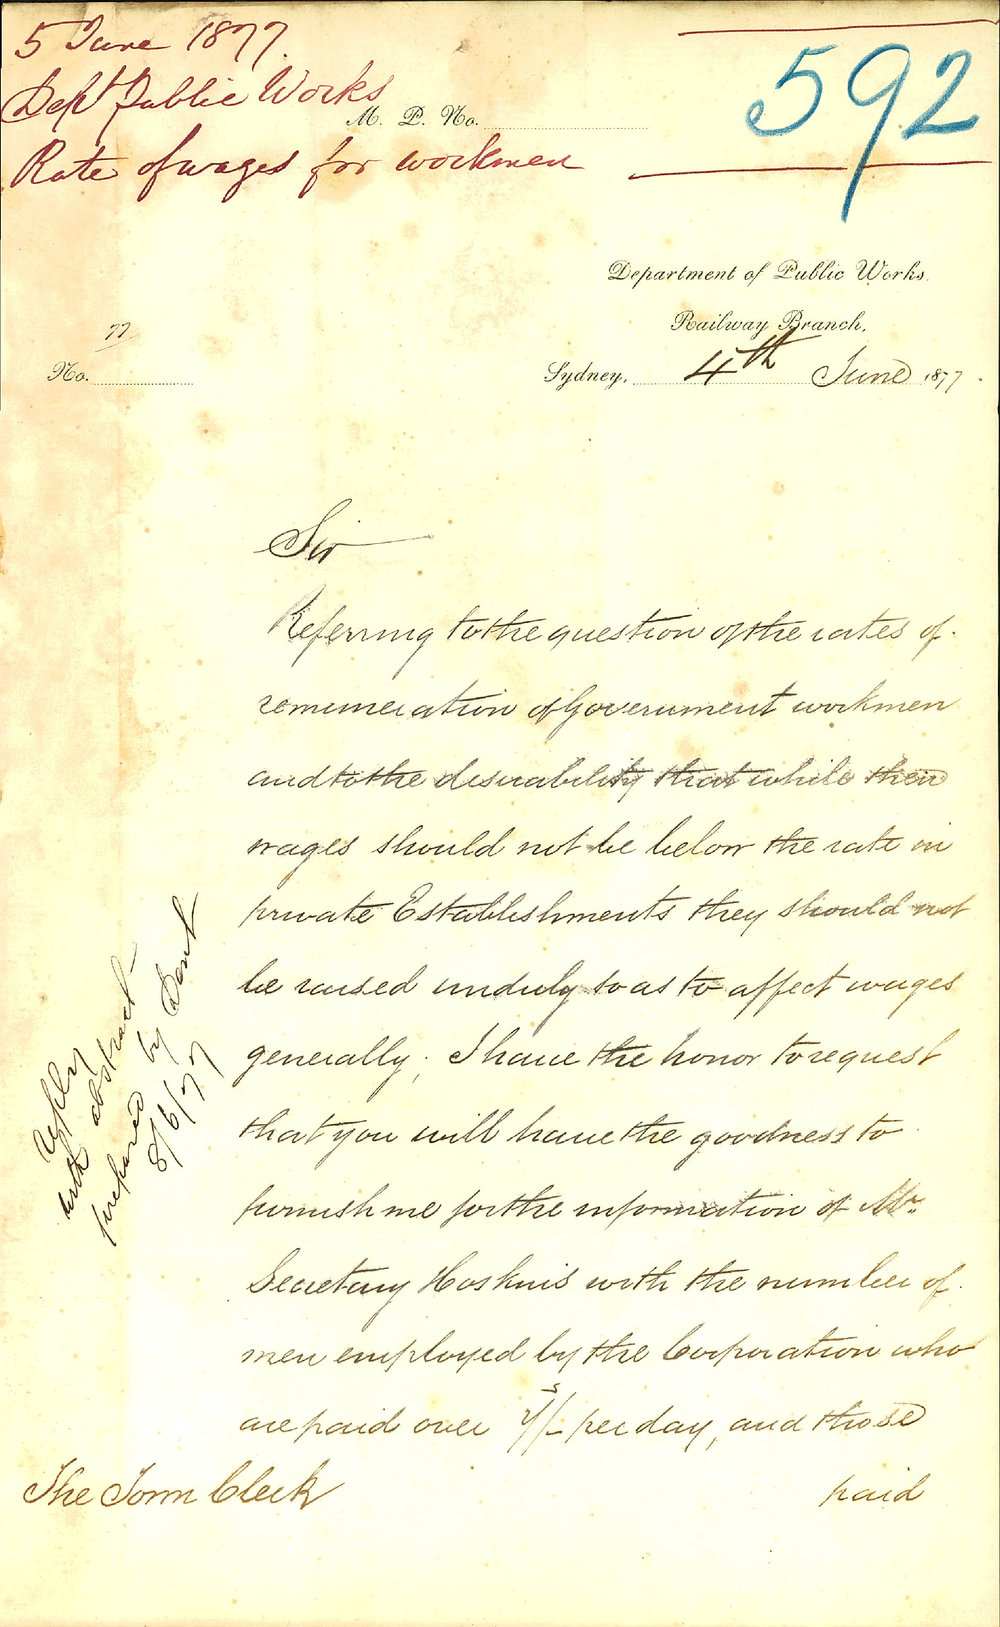 5 June 1877.
Dept Public Works
M. P. No.
Rate of wages for workmen
592
Department of Public Works.
Railway Branch,
77
No.
Sydney, 4th June 1877.
Sir
Referring to the question of the rates of
remuneration of Government workmen
and to the desirability that while their
wages should not be below the rate in
private Establishments they should not
be raised unduly so as to affect wages
generally; I have the honor to request
that you will have the goodness to
furnish me for the information of Mr.
Secretary Hoskins with the number of
men employed by the Corporation who
are paid over /- per day, and those
paid
The Town Clerk
reply
with abstract
prepared by
8/6/77